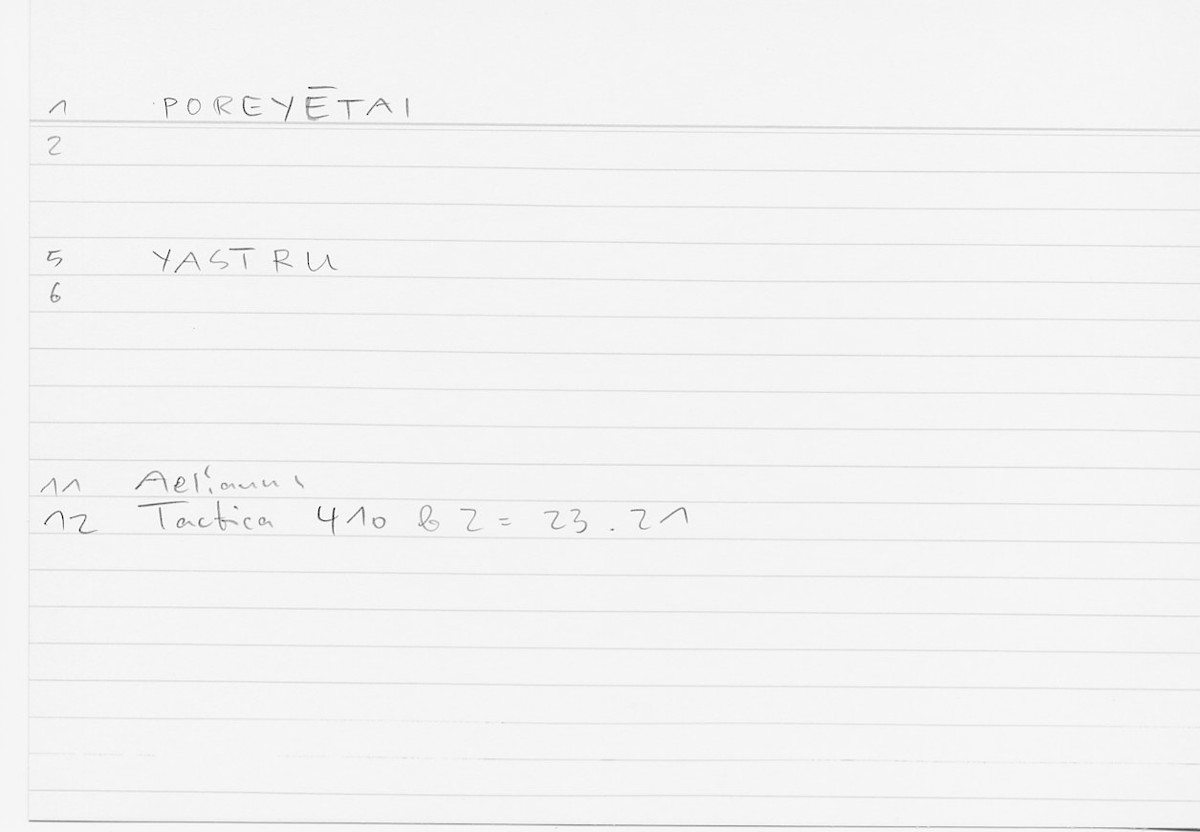 1 POREYĒTAI
2
5 YASTRU
6
11 Aelianus
12 Tactica 410 b 2 = 23.21